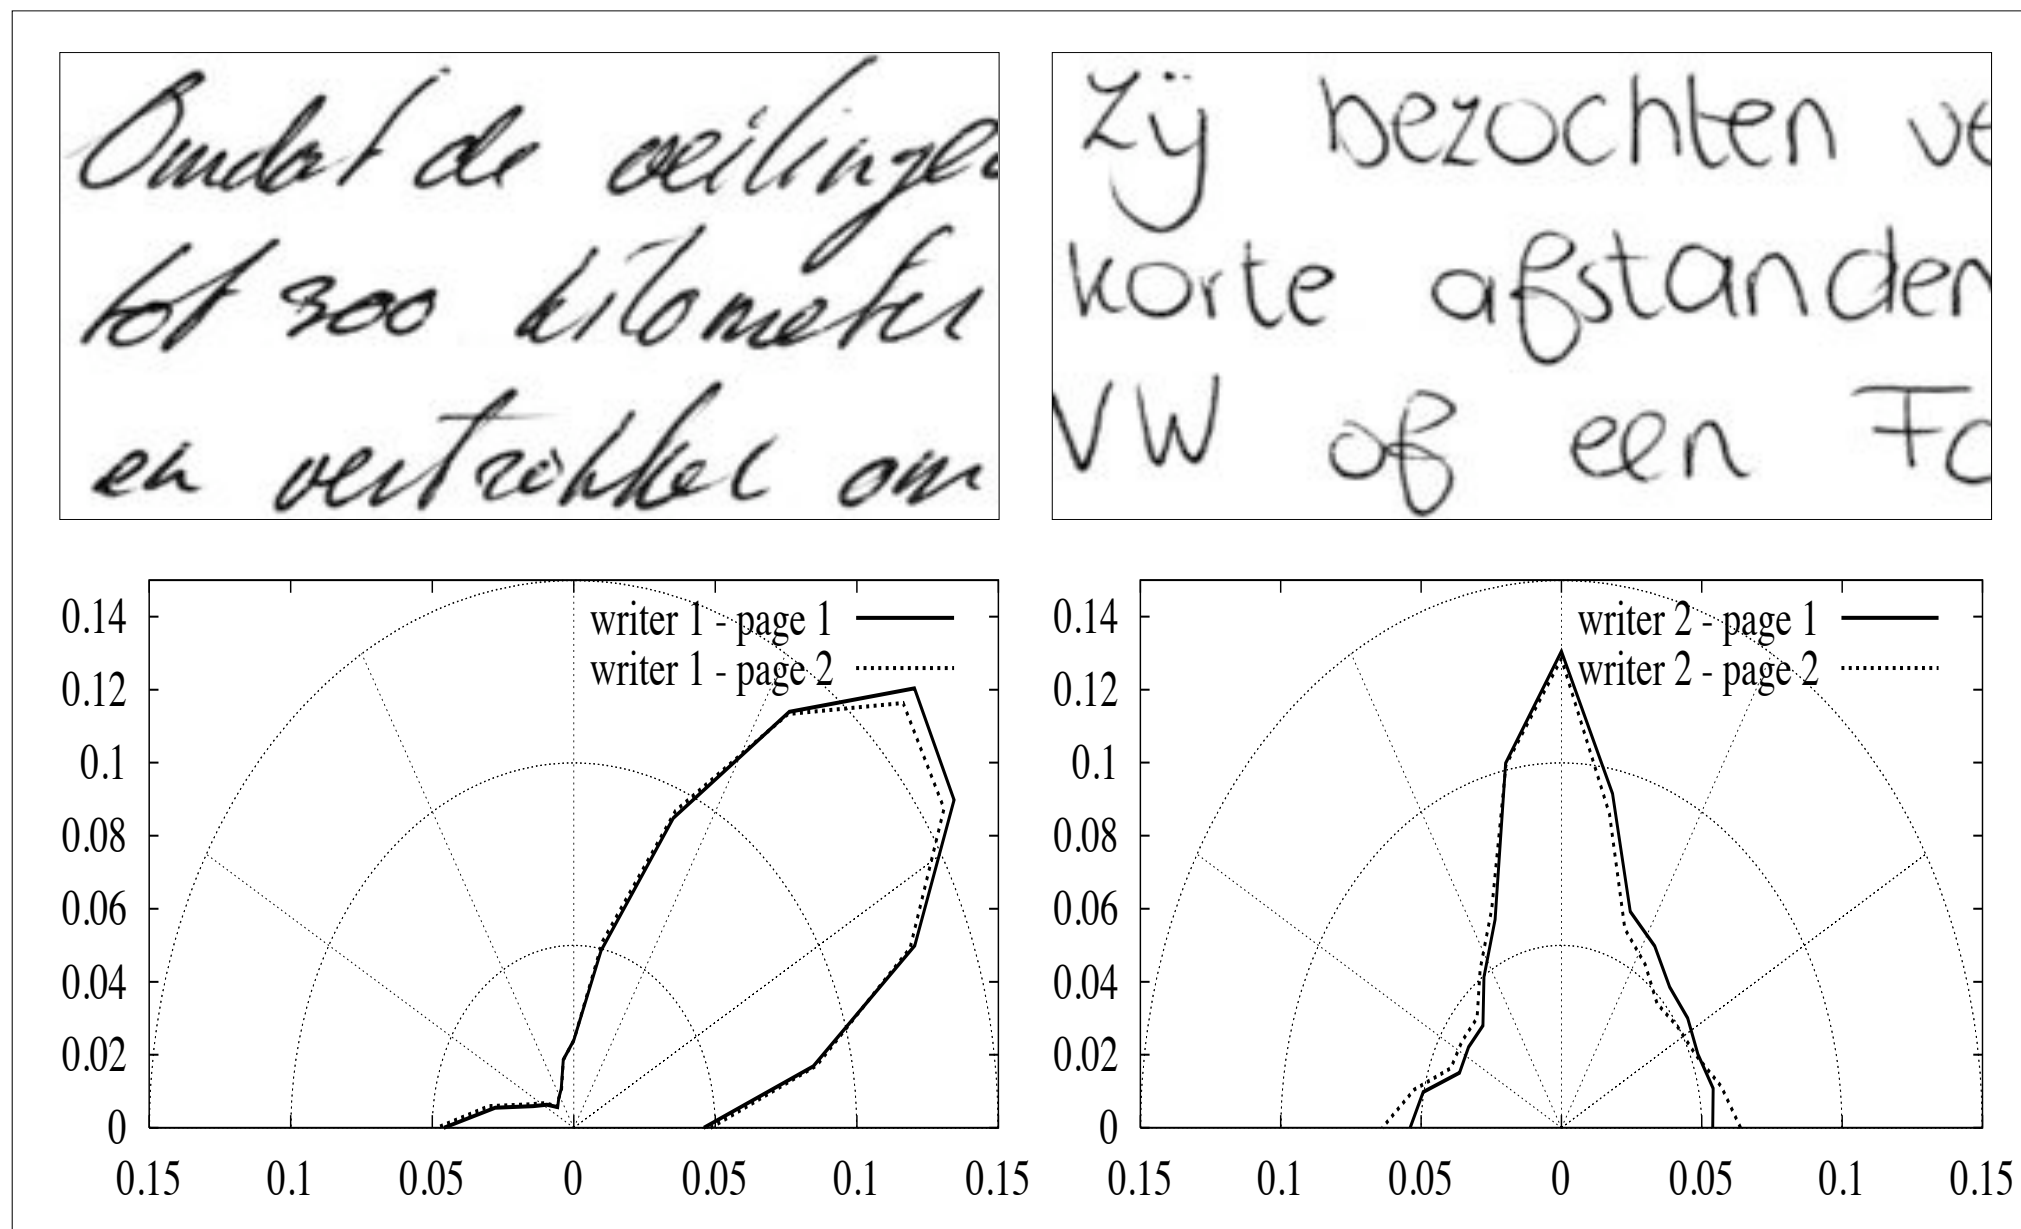 Omdat de veilingen
tot 300 kilometer
en vertrokkel om
Zij bezochten ve
korte afstanden
VW of een Fo
writer 1 - page 1
writer 1 - page 2
0.14
0.12
0.1
0.08
0.06
0.04
0.02
0
0.15 0.1 0.05 0 0.05 0.1 0.15
writer 2 - page 1
writer 2 - page 2
0.14
0.12
0.1
0.08
0.06
0.04
0.02
0
0.15 0.1 0.05 0 0.05 0.1 0.15